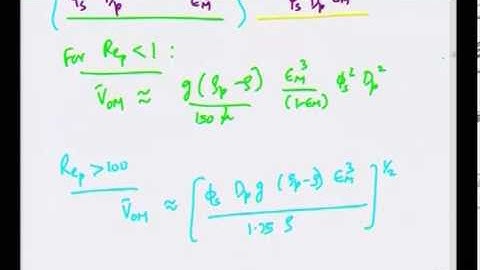 φs Dp εM φs Dp εM
For Rep < 1 :
V̄OM ≈ g(ρp-ρ)/150μ εM³/(1-εM) φs² Dp²
Rep > 100
V̄OM ≈ [φs Dp g (ρp-ρ) εM³ / 1.75 ρ]^1/2